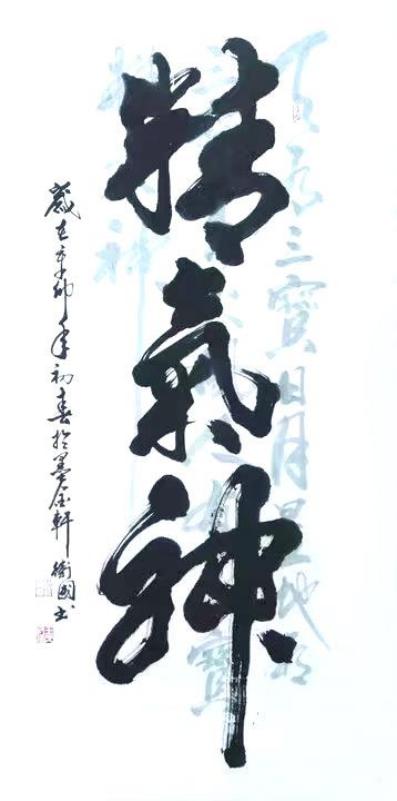 天有三寶日月星地有
寶
精氣神
歲在辛卯年初春於墨軒衛國書